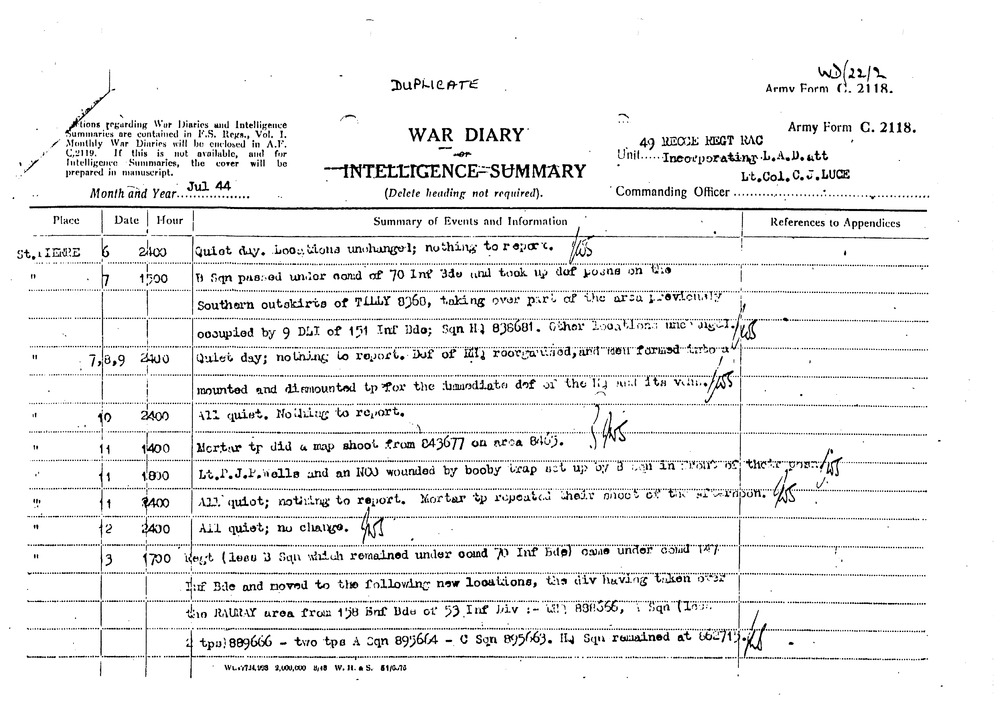 WD/22/2
DUPLICATE
Army Form C. 2118.
tions regarding War Diaries and Intelligence
Summaries are contained in F.S. Regs., Vol. I.
Monthly War Diaries will be enclosed in A.F.
C.2119. If this is not available, and for
Intelligence Summaries, the cover will be
prepared in manuscript.
Month and Year Jul 44
WAR DIARY
or
INTELLIGENCE SUMMARY
(Delete heading not required).
Army Form C. 2118.
49 RECCE REGT RAC
Unit.....Incorporating L.A.D.att
Lt.Col.C.J.LUCE
Commanding Officer
Place Date Hour Summary of Events and Information References to Appendices
6 2400 Quiet day. Locations unchanged; nothing to report.
" 7 1500 B Sqn passed under comd of 70 Inf Bde and took up def posns on the
Southern outskirts of TILLY 8368, taking over part of the area previously
occupied by 9 DLI of 151 Inf Bde; Sqn HQ 836681. Other locations unchangel.
" 7,8,9 2400 Quiet day; nothing to report. Def of reorganised, and men formed into a
mounted and dismounted tp for the immediate def of the HQ and its
" 10 2400 All quiet. Nothing to report.
" 11 1400 Mortar tp did a map shoot from 843677 on area 8465.
" 11 1800 Lt.P.J.P.Wells and an NCO wounded by booby trap set up by B Sqn in front of their posn
" 11 2400 All quiet; nothing to report. Mortar tp repeated their shoot of the afternoon.
" 12 2400 All quiet; no change.
" 3 1700 Regt (less B Sqn which remained under comd 70 Inf Bde) came under comd 147
Inf Bde and moved to the following new locations, the div having taken over
the RAURAY area from 158 Inf Bde of 53 Inf Div :- 888666, A Sqn (less
2 tps) 889666 - two tps A Sqn 895664 - C Sqn 895663. HQ Sqn remained at 862715.